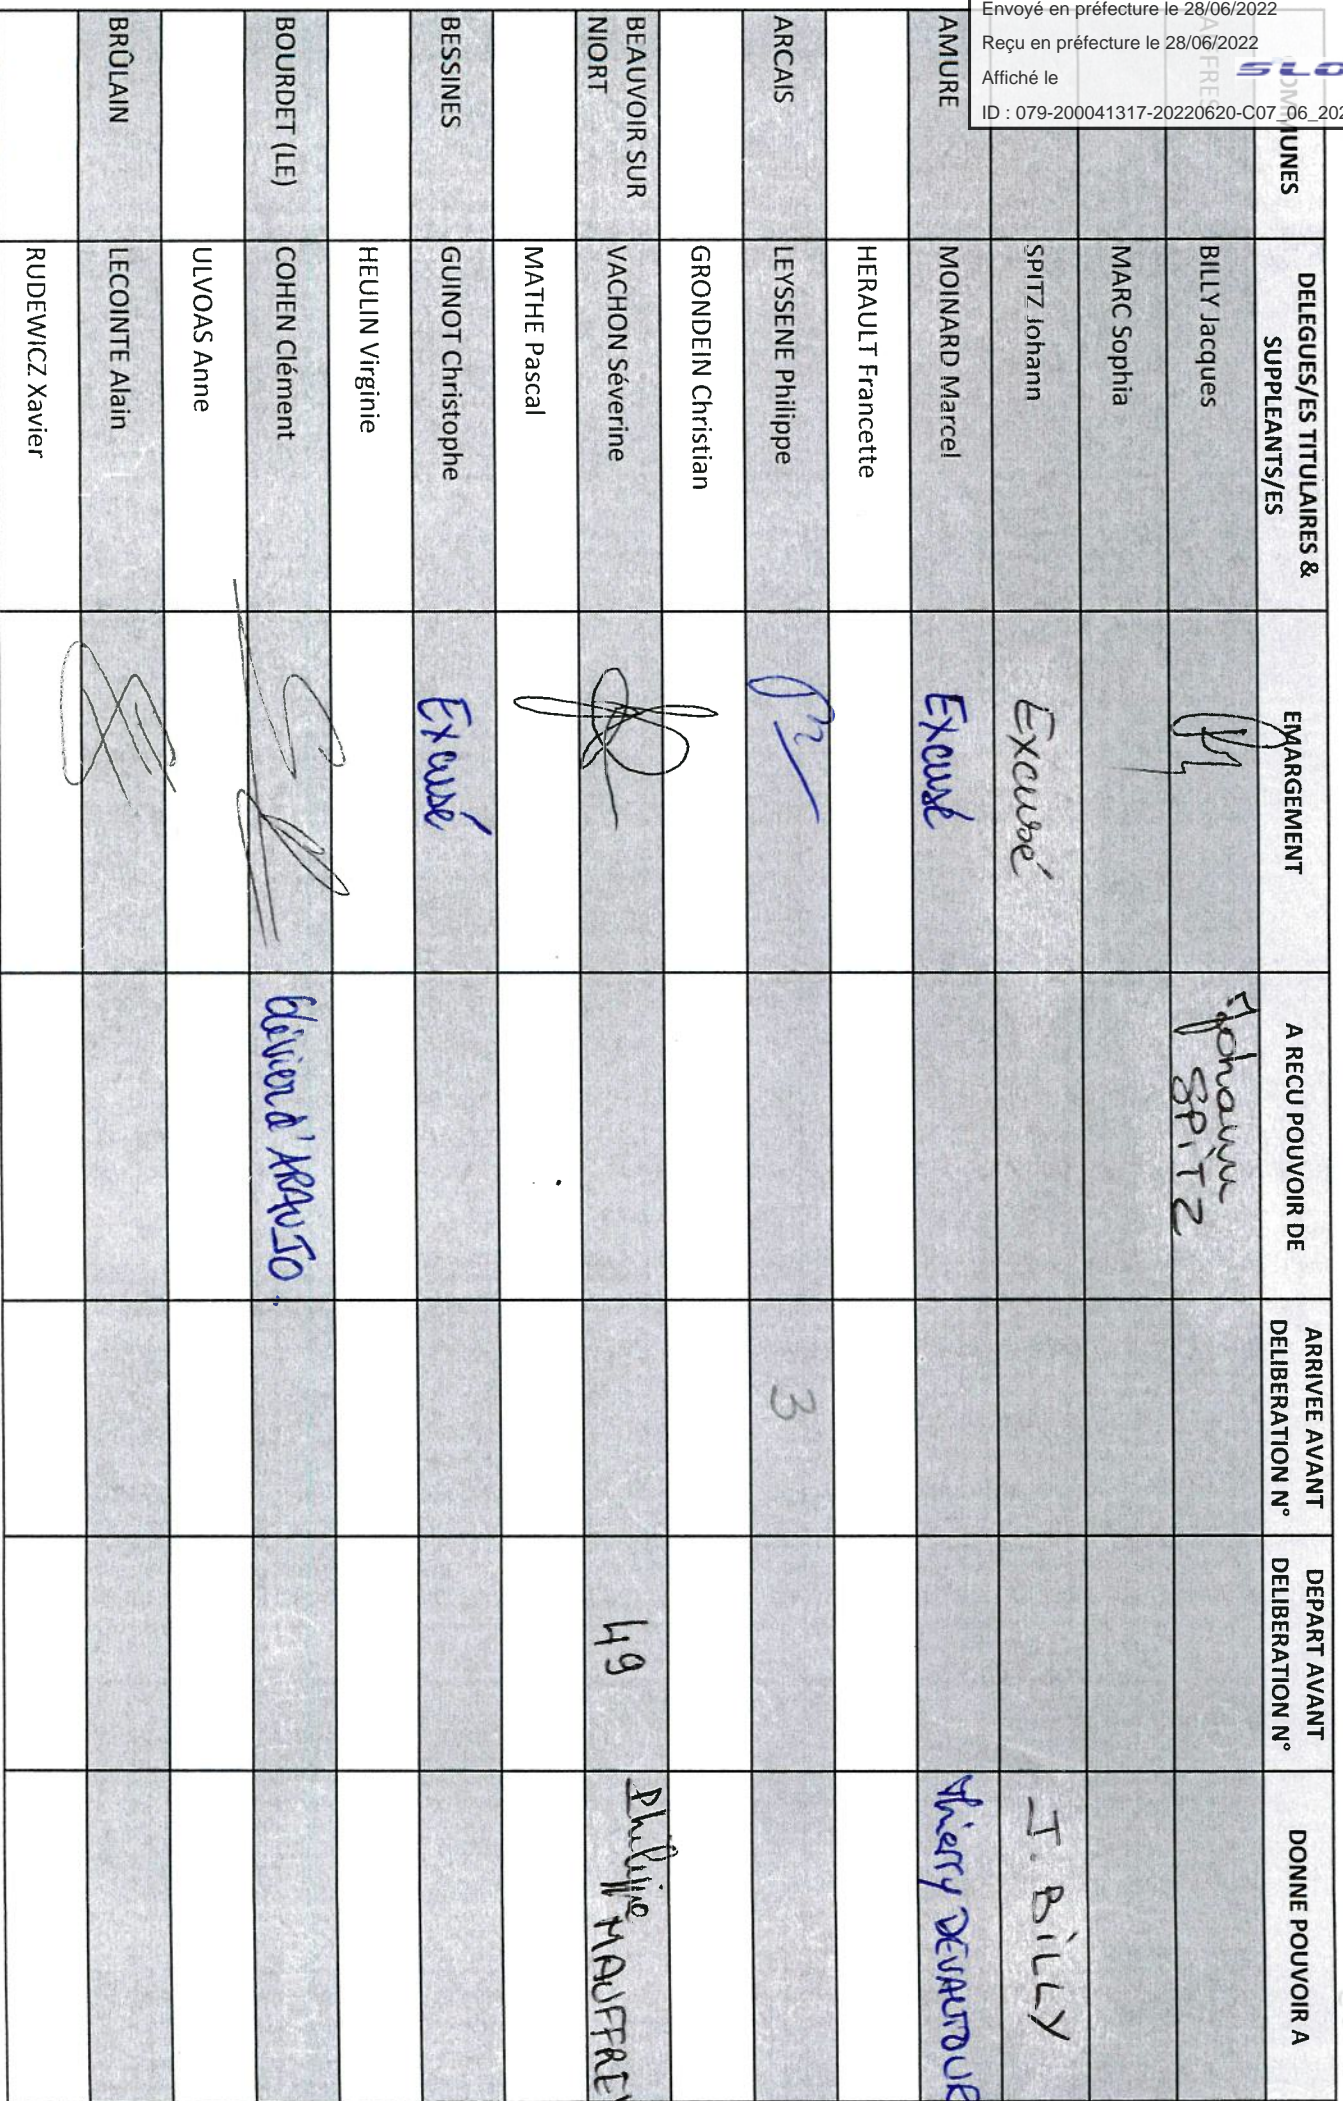 Envoyé en préfecture le 28/06/2022
Reçu en préfecture le 28/06/2022
Affiché le
ID : 079-200041317-20220620-C07_06_202
COMMUNES
DELEGUES/ES TITULAIRES &
SUPPLEANTS/ES
EMARGEMENT
A RECU POUVOIR DE
ARRIVEE AVANT
DELIBERATION N°
DEPART AVANT
DELIBERATION N°
DONNE POUVOIR A
BILLY Jacques
Johann
SPITZ
MARC Sophia
SPITZ Johann
Excusé
J. BILLY
AMURE
MOINARD Marcel
Excusé
Thierry DEVAUTOUR
HERAULT Francette
ARCAIS
LEYSSENE Philippe
3
GRONDEIN Christian
BEAUVOIR SUR
NIORT
VACHON Séverine
49
Philippe
MAUFFREY
MATHE Pascal
BESSINES
GUINOT Christophe
Excusé
HEULIN Virginie
BOURDET (LE)
COHEN Clément
d'ARAUJO
ULVOAS Anne
BRÛLAIN
LECOINTE Alain
RUDEWICZ Xavier